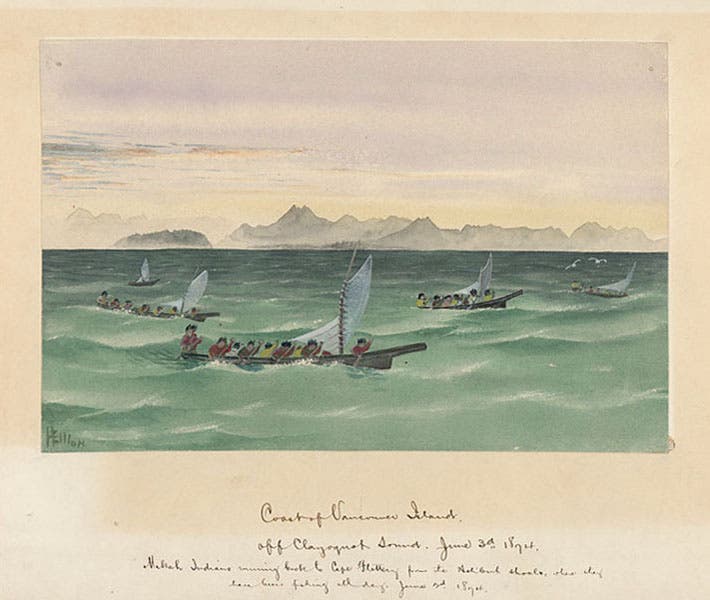 HW Elliott
Coast of Vancouver Island.
off Clayoquot Sound. June 3d 1874.
Makah Indians running back to Cape Flattery from the Halibut shoals, where they
have been fishing all day. June 3d 1874.